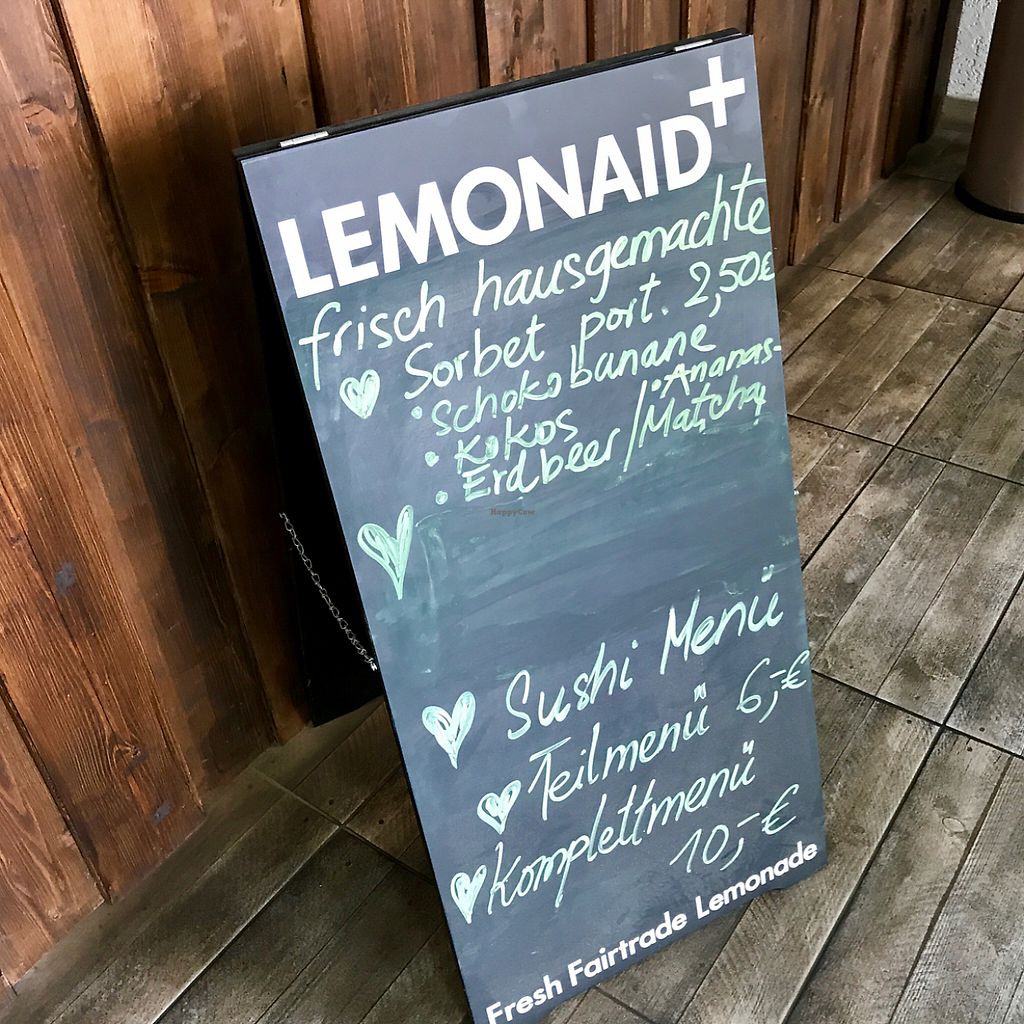 LEMONAID+
frisch hausgemachte
Sorbet port. 2,50€
• Schoko banane
• Kokos • Ananas-
• Erdbeer / Matcha
HappyCow
Sushi Menü
Teilmenü 6,-€
Komplettmenü
10,-€
Fresh Fairtrade Lemonade